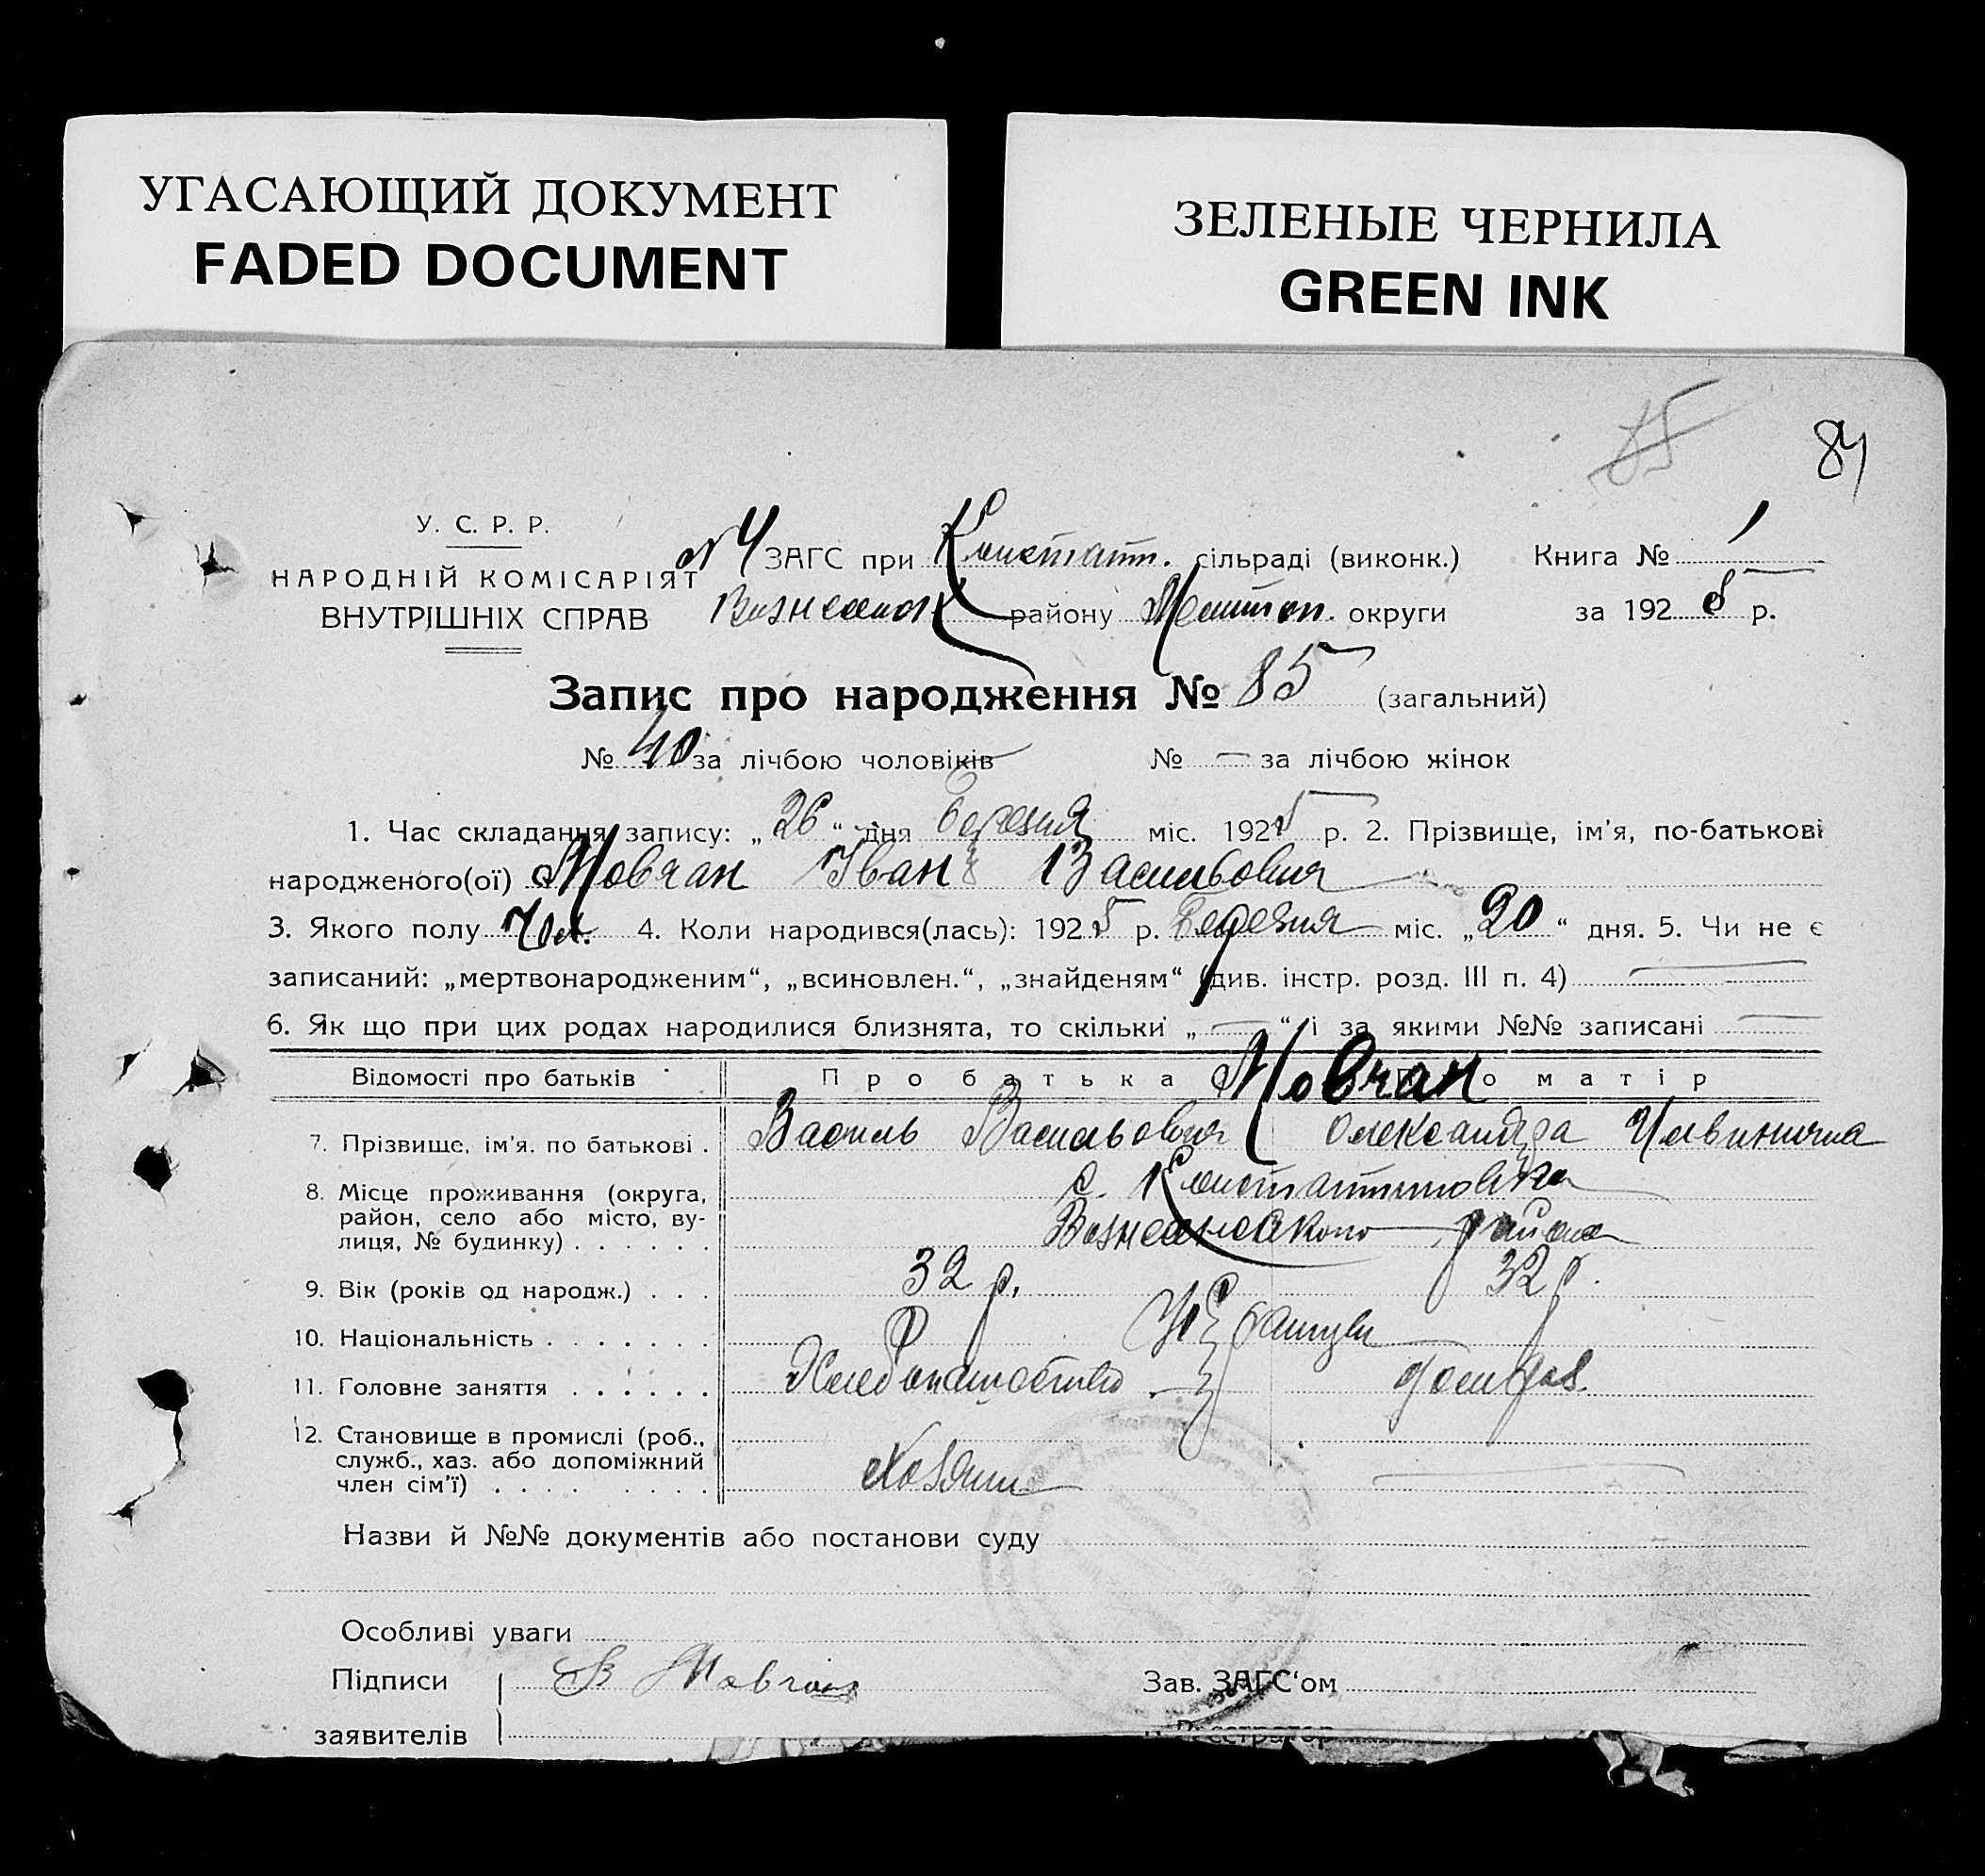 УГАСАЮЩИЙ ДОКУМЕНТ
FADED DOCUMENT
ЗЕЛЕНЫЕ ЧЕРНИЛА
GREEN INK
85
84
У. С. Р. Р.
НАРОДНІЙ КОМІСАРІЯТ
ВНУТРІШНІХ СПРАВ
№ 4 ЗАГС при Константт. сільраді (виконк.) Книга № 1
району округи за 1925 р.
Запис про народження № 85 (загальний)
№ 40 за лічбою чоловіків № — за лічбою жінок
1. Час складання запису: „26“ дня березня міс. 1925 р. 2. Прізвище, ім'я, по-батькові
народженого(ої) Мовчан Іван Васильович
3. Якого полу Чол. 4. Коли народився(лась): 1925 р. Березня міс. „20“ дня. 5. Чи не є
записаний: „мертвонародженим“, „всиновлен.“, „знайденям“ (див. інстр. розд. III п. 4) —
6. Як що при цих родах народилися близнята, то скільки „—“ і за якими №№ записані —
Відомості про батьків Про батька Про матір
Мовчан
7. Прізвище, ім'я. по батькові . Василь Васильович Олександра
8. Місце проживання (округа, с. Константиновка
район, село або місто, ву- Вознесенского района
лиця, № будинку) . . . . . .
9. Вік (років од народж.) . . . 32 р. 32 р.
10. Національність . . . . . . .
11. Головне заняття . . . . . . Хлебопашество
12. Становище в промислі (роб.,
служб., хаз. або допоміжний Хозяин —
член сім'ї) . . . . . . . .
Назви й №№ документів або постанови суду
Особливі уваги
Підписи В Мовчан Зав. ЗАГС'ом
заявителів й Реєстратор